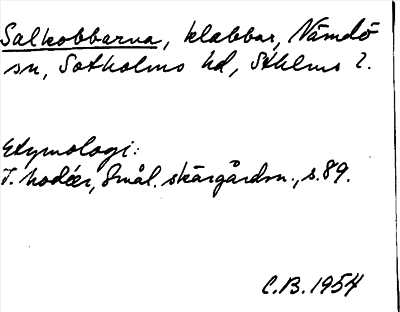 Salkobbarna, klabbar, Nämdö
sn, Sotholms hd, Sthlms l.
Etymologi:
I. Modéer, Smål. skärgårdsn., s. 89.
C.B. 1954